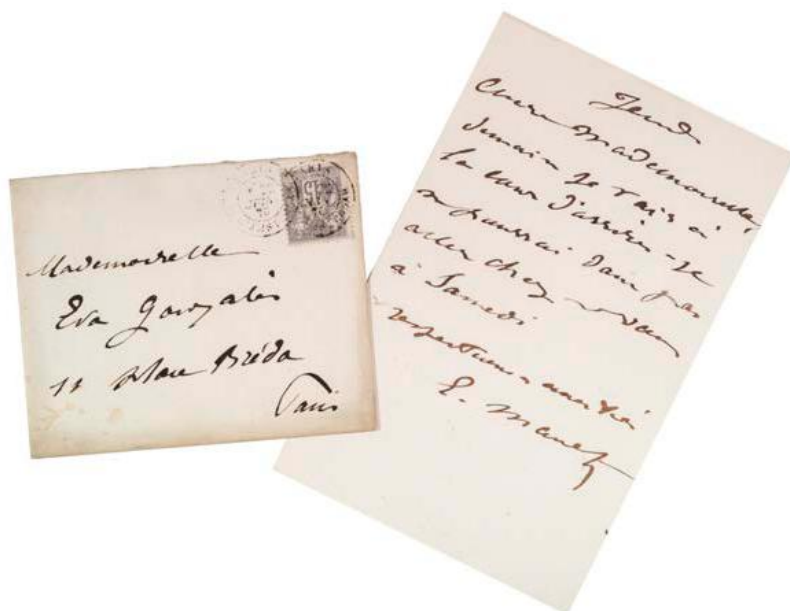 Mademoiselle
Eva Gonzalès
11 place Bréda
Paris
Jeudi
Chère Mademoiselle,
demain je vais à
la cour d'assises - je
ne pourrai donc pas
aller chez vous
à Samedi
E. Manet